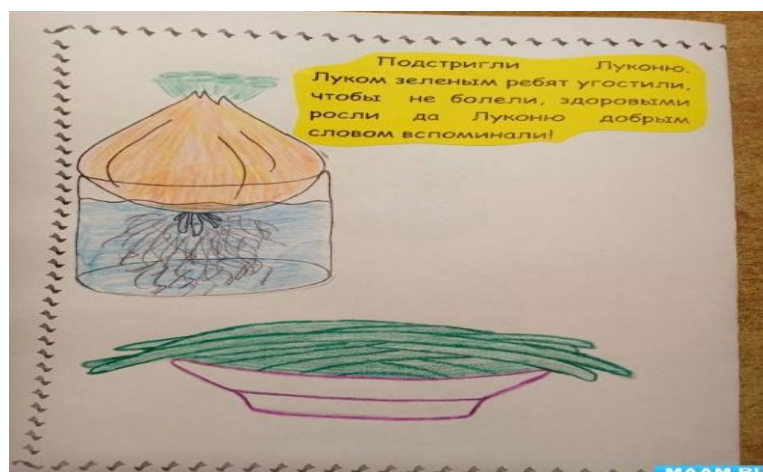 Подстригли Луконю.
Луком зеленым ребят угостили,
чтобы не болели, здоровыми
росли да Луконю добрым
словом вспоминали!